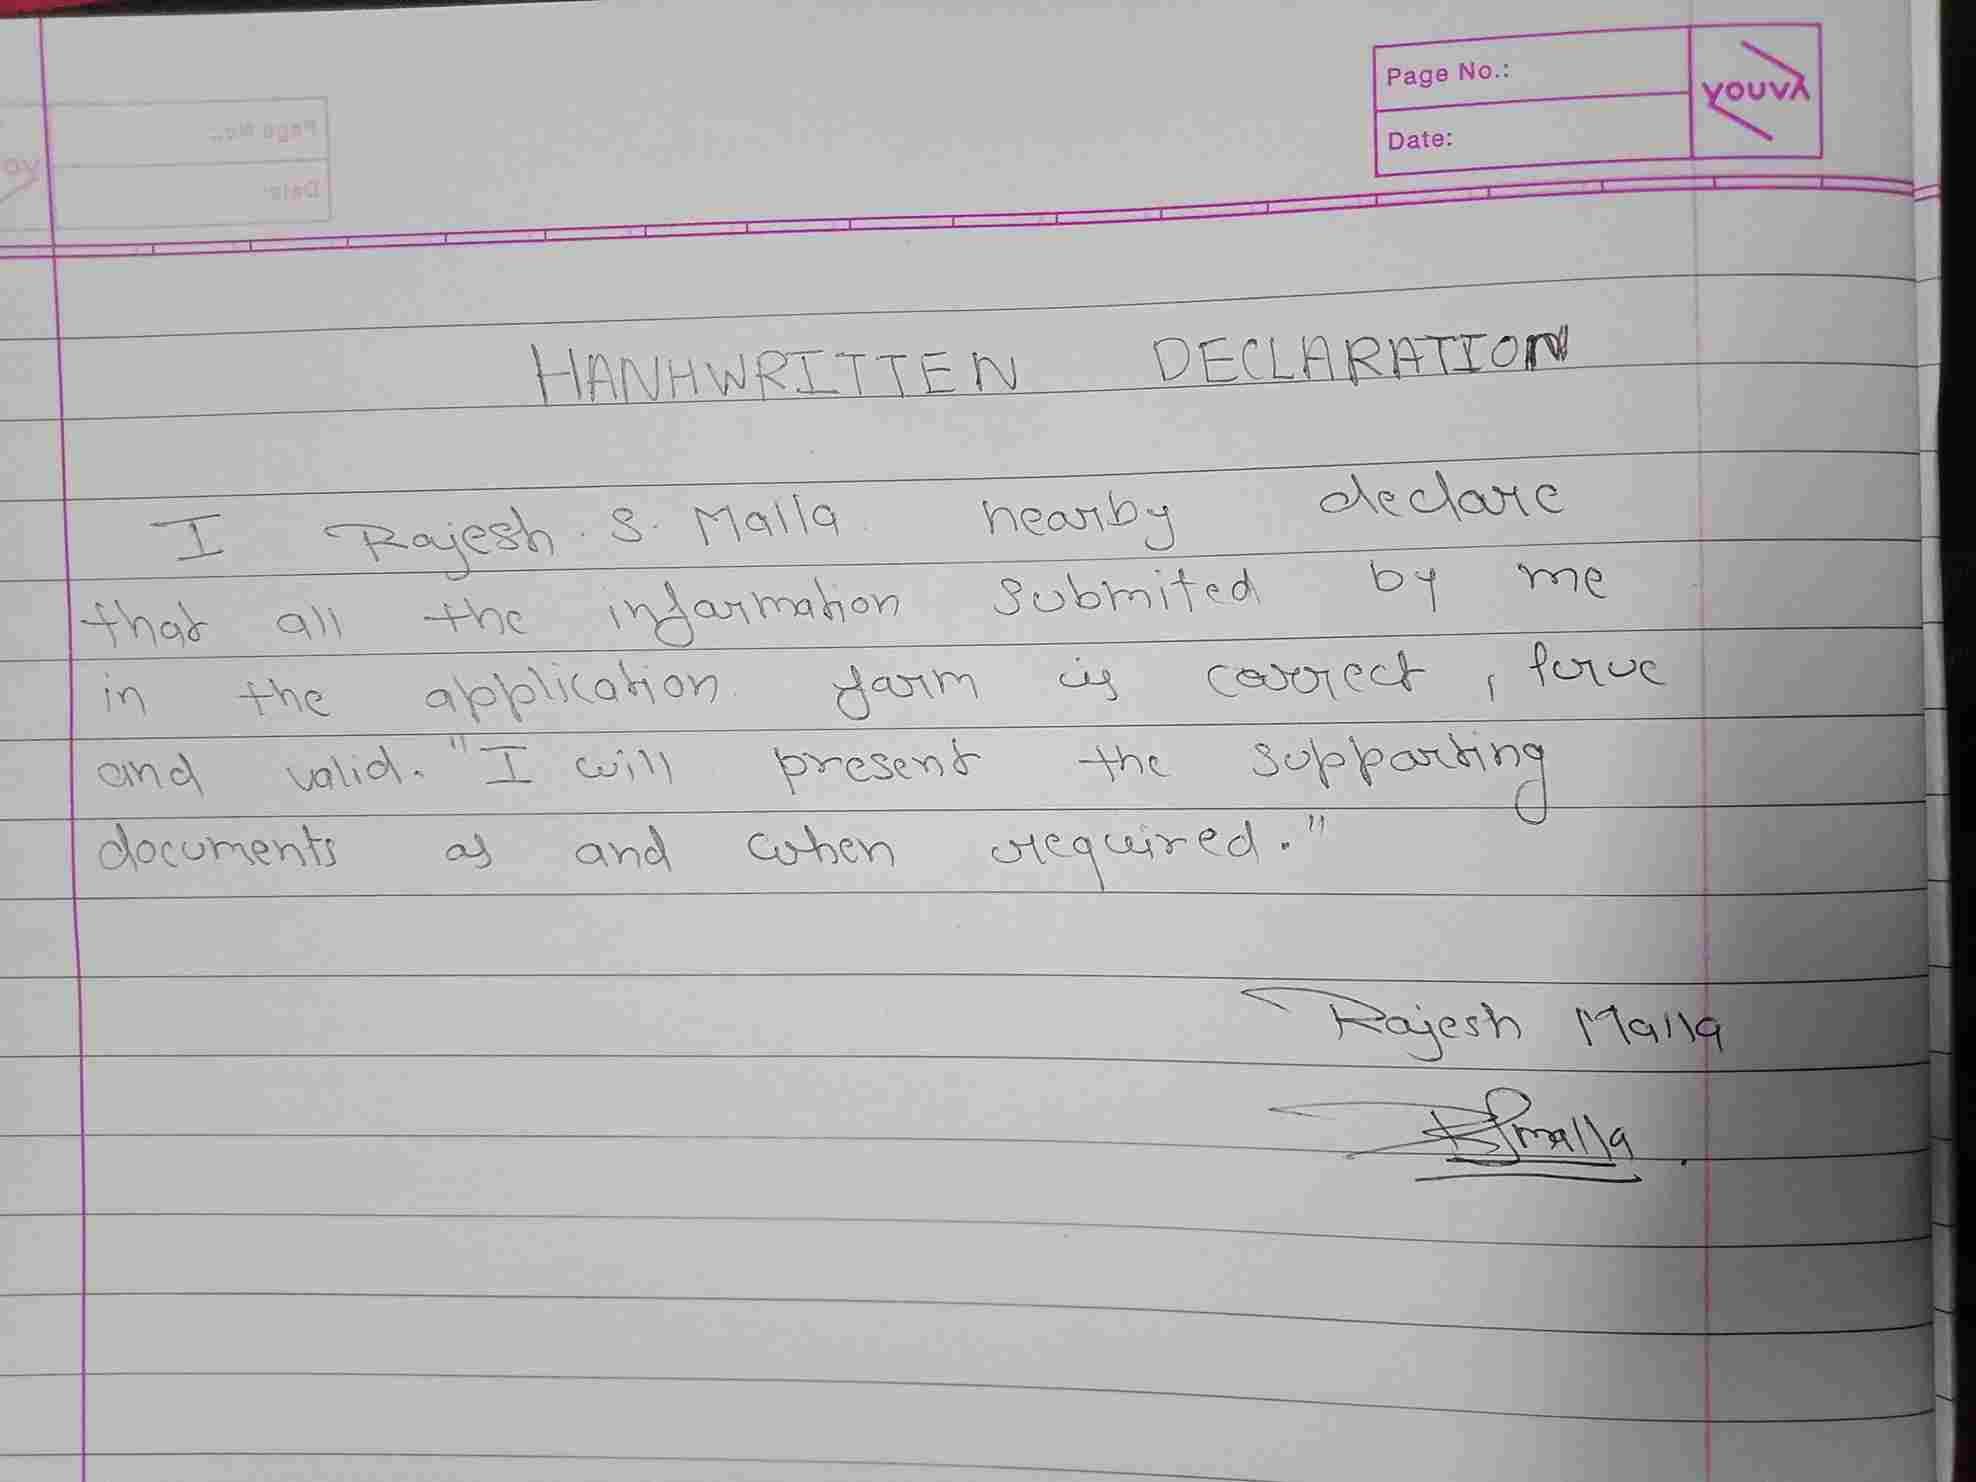 Page No.:
Date:
YOUVA
HANHWRITTEN DECLARATION
I Rajesh S. Malla hearby declare
that all the information submited by me
in the application form is correct, true
and valid. "I will present the supporting
documents as and when required."
Rajesh Malla